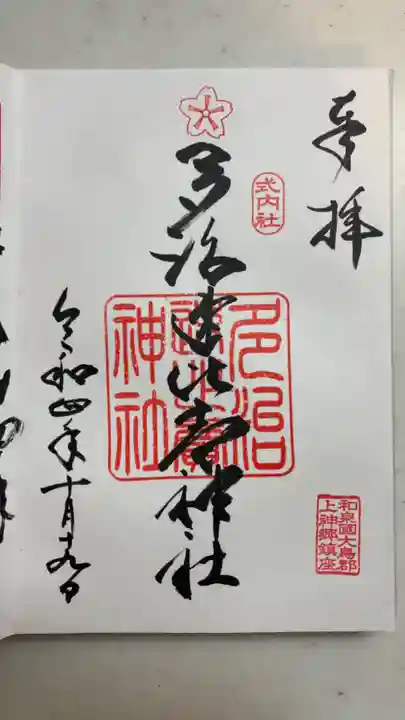 奉拝
式内社
多治速比売神社
多治
速比賣
神社
和泉國大鳥郡
上神郷鎮座
令和四年十月十九日